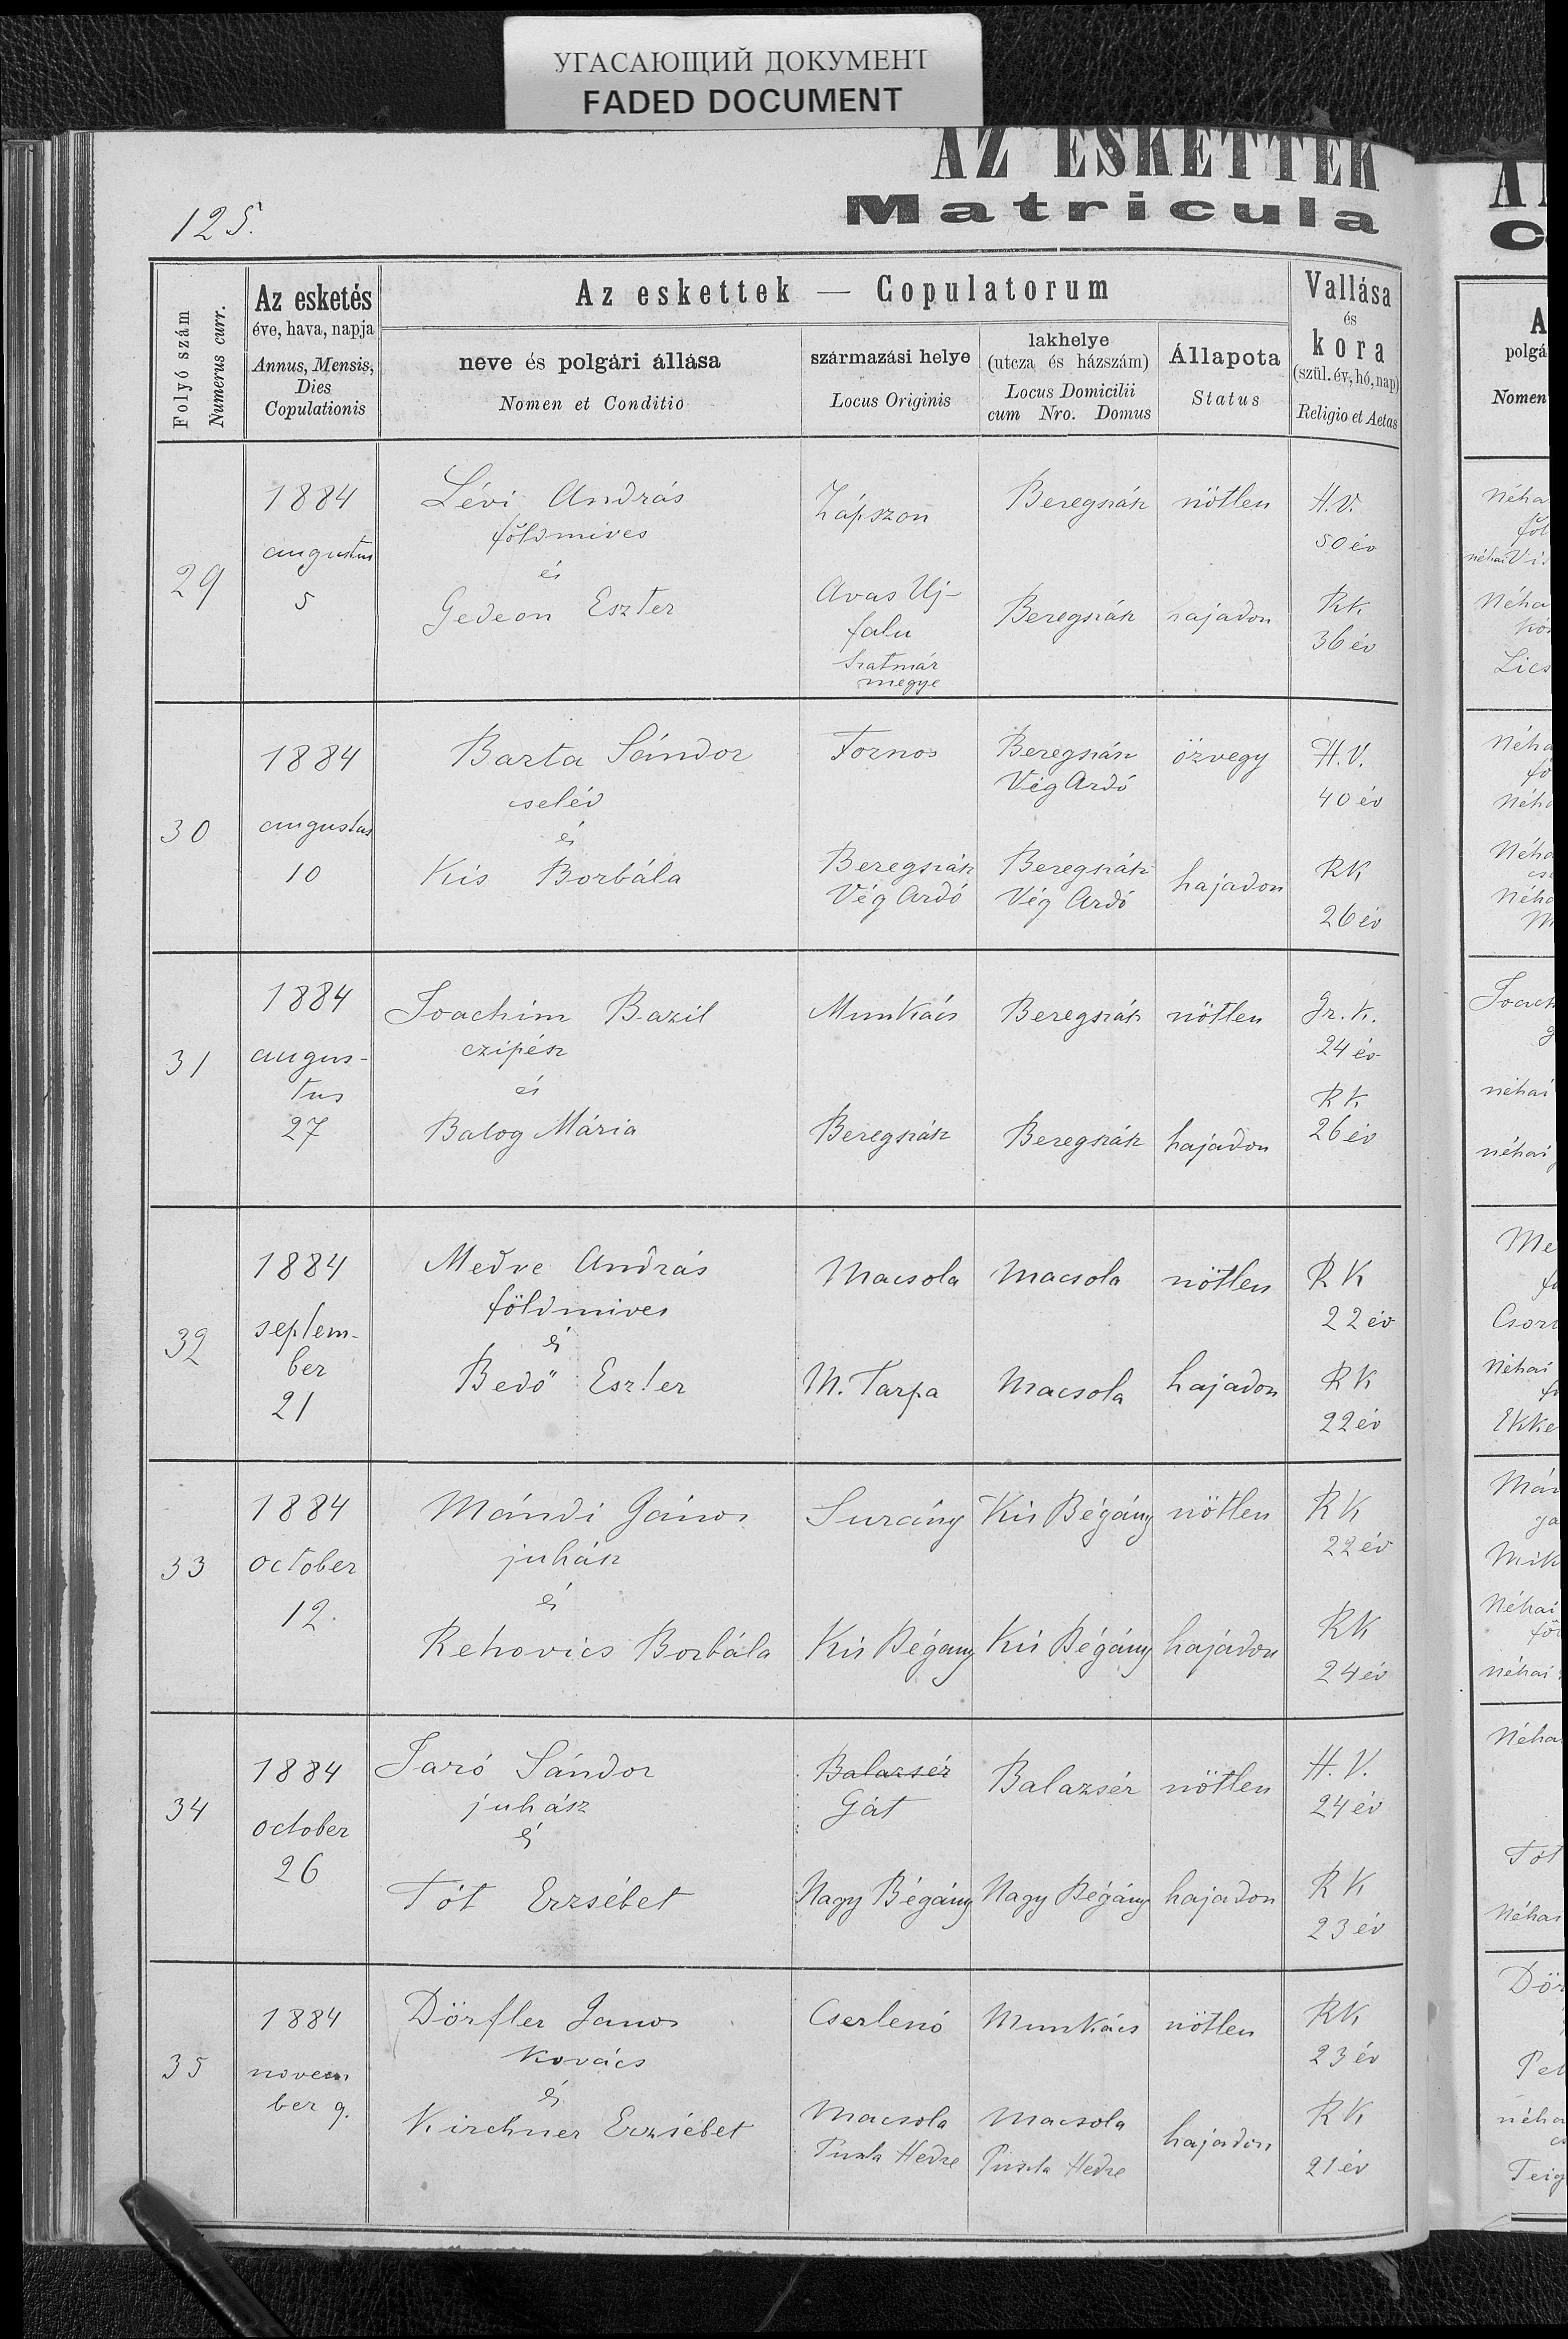 УГАСАЮЩИЙ ДОКУМЕНТ
FADED DOCUMENT
AZ ESKETTEK
Matricula
125.
Folyó szám
Numerus curr.
Az esketés
éve, hava, napja
Annus, Mensis,
Dies
Copulationis
Az eskettek — Copulatorum
neve és polgári állása
Nomen et Conditio
származási helye
Locus Originis
lakhelye
(utcza és házszám)
Locus Domicilii
cum Nro. Domus
Állapota
Status
Vallása
és
kora
(szül. év, hó, nap)
Religio et Aetas
29
1884
augustus
5
Lévi András
földmives
és
Gedeon Eszter
Zápszon
Avas Uj-
falu
Szatmár
megye
Beregszász
Beregszász
nötlen
hajadon
H.V.
50 év
RK
36 év
30
1884
augustus
10
Barta Sándor
cseléd
és
Kis Borbála
Tornos
Beregszász
Vég Ardó
Beregszász
Vég Ardó
Beregszász
Vég Ardó
özvegy
hajadon
H.V.
40 év
RK
26 év
31
1884
augus-
tus
27
Joachim Bazil
czipész
és
Balog Mária
Munkács
Beregszász
Beregszász
Beregszász
nötlen
hajadon
Gr. K.
24 év
RK
26 év
32
1884
septem-
ber
21
Medve András
földmives
és
Bedő Eszter
Macsola
M. Tarpa
Macsola
Macsola
nötlen
hajadon
RK
22 év
RK
22 év
33
1884
october
12.
Mándi János
juhász
és
Rehovics Borbála
Surány
Kis Bégany
Kis Bégány
Kis Bégány
nötlen
hajadon
RK
22 év
RK
24 év
34
1884
october
26
Jaró Sándor
juhász
és
Tót Erzsébet
Balazsér
Gát
Nagy Bégány
Balazsér
Nagy Bégány
nötlen
hajadon
H.V.
24 év
RK
23 év
35
1884
novem
ber 9.
Dörfler Janos
Kovács
és
Kirchner Erzsébet
Cserlenó
Macsola
Puszta Hedre
Munkács
Macsola
Puszta Hedre
nötlen
hajadon
RK
23 év
RK
21 év